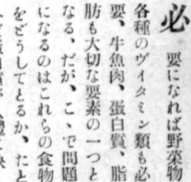 必要になれば野菜物
各種のヴイタミン類も必
要、牛魚肉、蛋白質、脂
肪も大切な要素の一つと
なる、だが、こゝで問題
になるのはこれらの食物
をどうしてとるか、たと